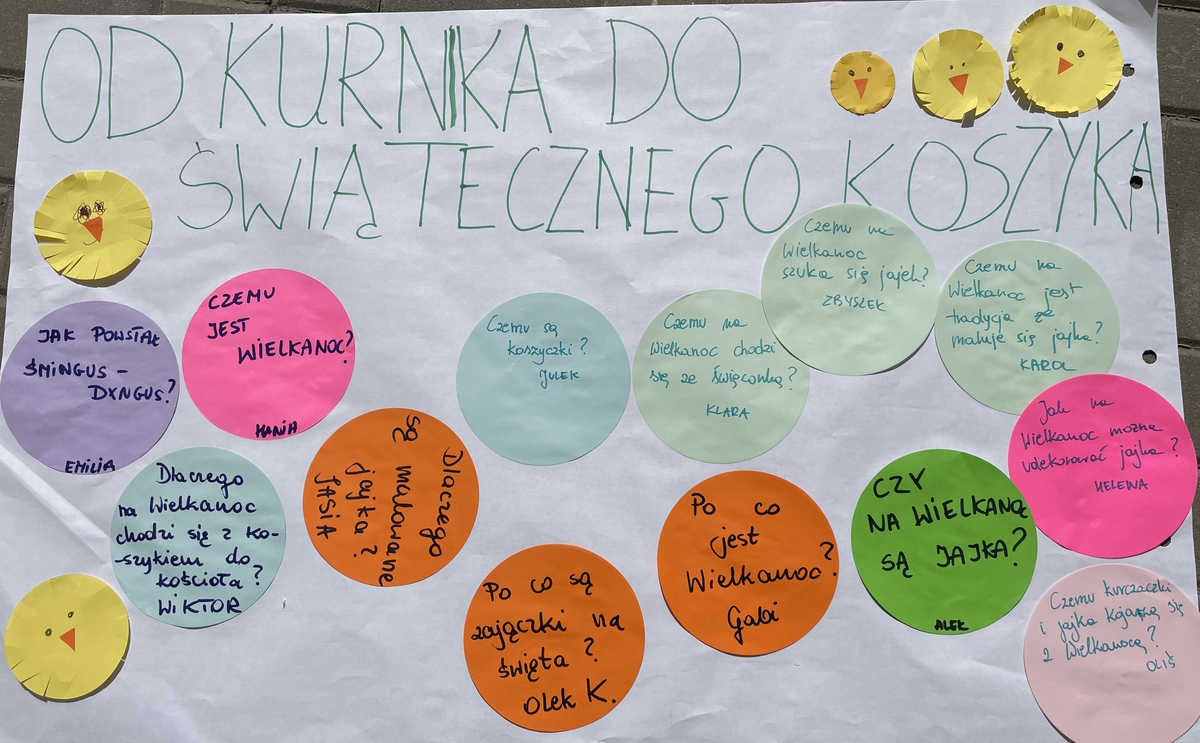 OD KURNIKA DO
ŚWIĄTECZNEGO KOSZYKA
JAK POWSTAŁ
ŚMINGUS –
DYNGUS?
EMILIA
CZEMU
JEST
WIELKANOC?
HANIA
Dlaczego
na Wielkanoc
chodzi się z ko-
-szykiem do
kościoła?
WIKTOR
Dlaczego
są malowane
jajka?
JASIA
Czemu są
koszyczki?
JULEK
Czemu na
Wielkanoc chodzi
się ze święconką?
KLARA
Czemu na
Wielkanoc
szuka się jajek?
ZBYSZEK
Czemu na
Wielkanoc jest
tradycja że
maluje się jajka?
KAROL
Jak na
Wielkanoc można
udekorować jajka?
HELENA
Po co są
zajączki na
święta?
Olek K.
Po co
jest
Wielkanoc?
Gabi
CZY
NA WIELKANOC
SĄ JAJKA?
ALEK
Czemu kurczaczki
i jajka kojarzą się
z Wielkanocą?
OLIŚ